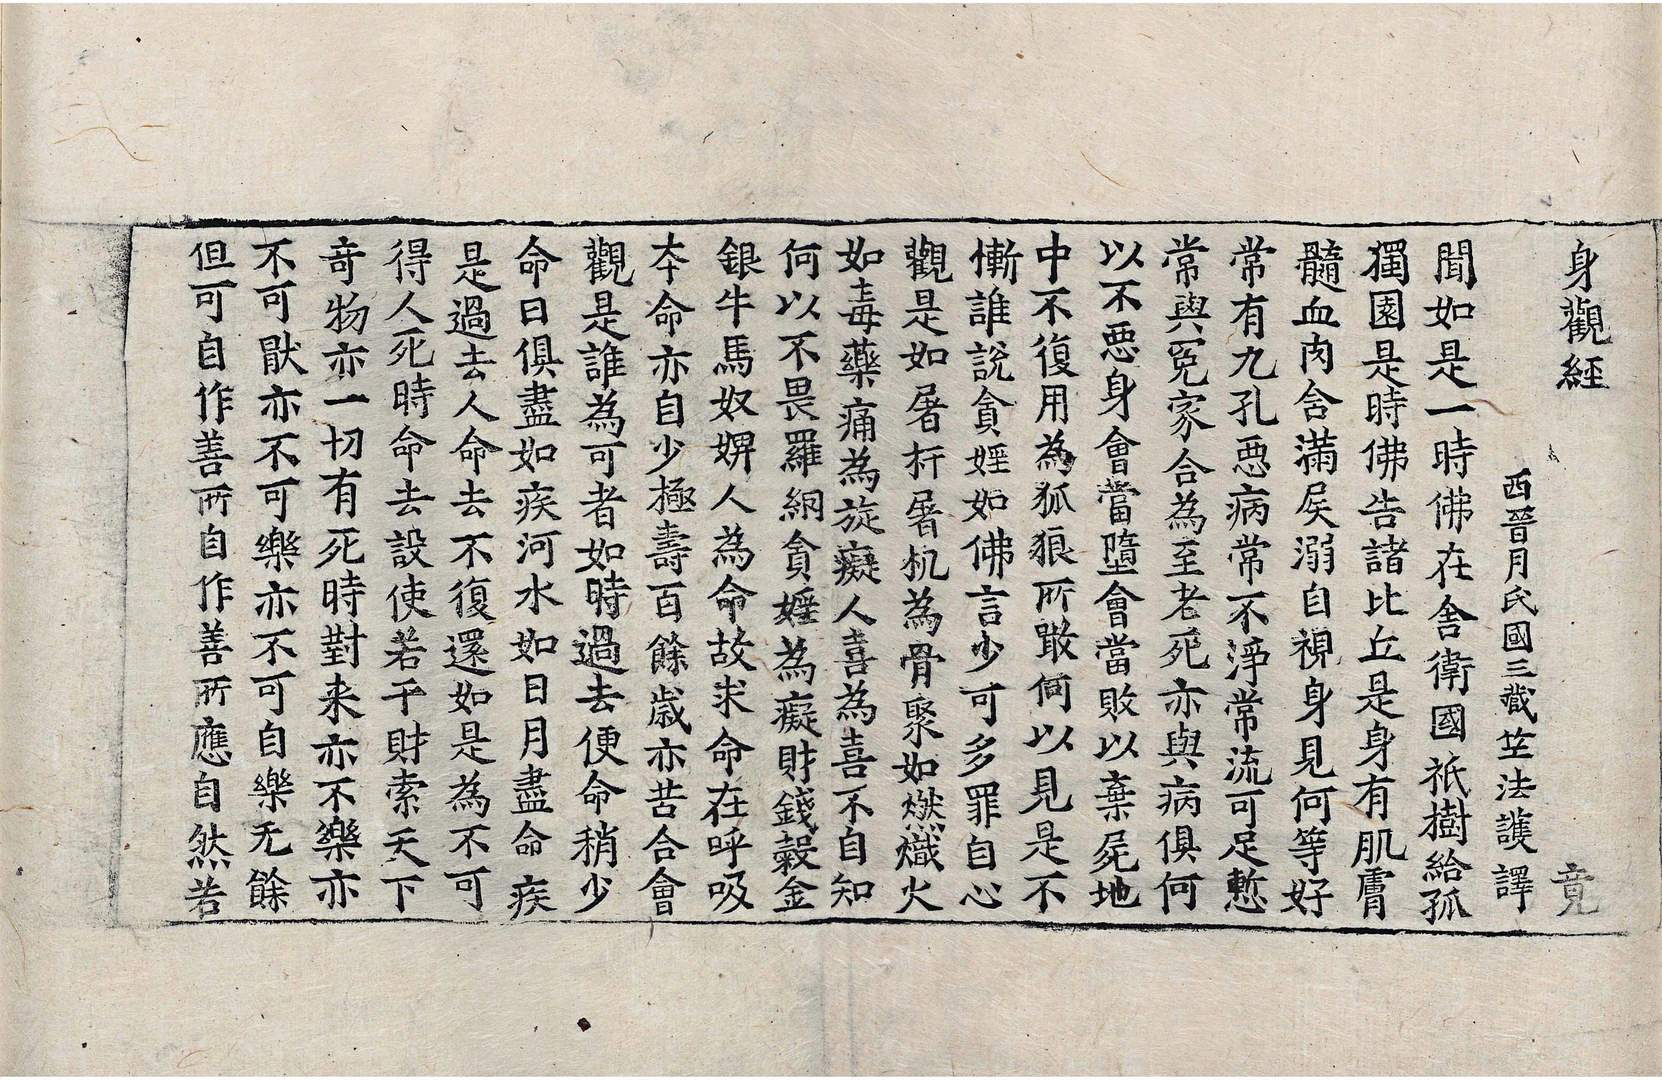 身觀經 竟
西晉月氏國三藏竺法護譯
聞如是一時佛在舍衛國祇樹給孤
獨園是時佛告諸比丘是身有肌膚
髓血肉含滿屎溺自視身見何等好
常有九孔惡病常不淨常流可足慙
常與冤家合為至老死亦與病俱何
以不惡身會當墮會當敗以棄屍地
中不復用為狐狼所噉何以見是不
慚誰說貪婬如佛言少可多罪自心
觀是如屠杅屠机為骨聚如燃熾火
如毒藥痛為旋癡人喜為喜不自知
何以不畏羅網貪婬為癡財錢穀金
銀牛馬奴婢人為命故求命在呼吸
本命亦自少極壽百餘歲亦苦合會
觀是誰為可者如時過去便命稍少
命日俱盡如疾河水如日月盡命疾
是過去人命去不復還如是為不可
得人死時命去設使若干財索天下
奇物亦一切有死時對来亦不樂亦
不可猒亦不可樂亦不可自樂无餘
但可自作善所自作善所應自然若